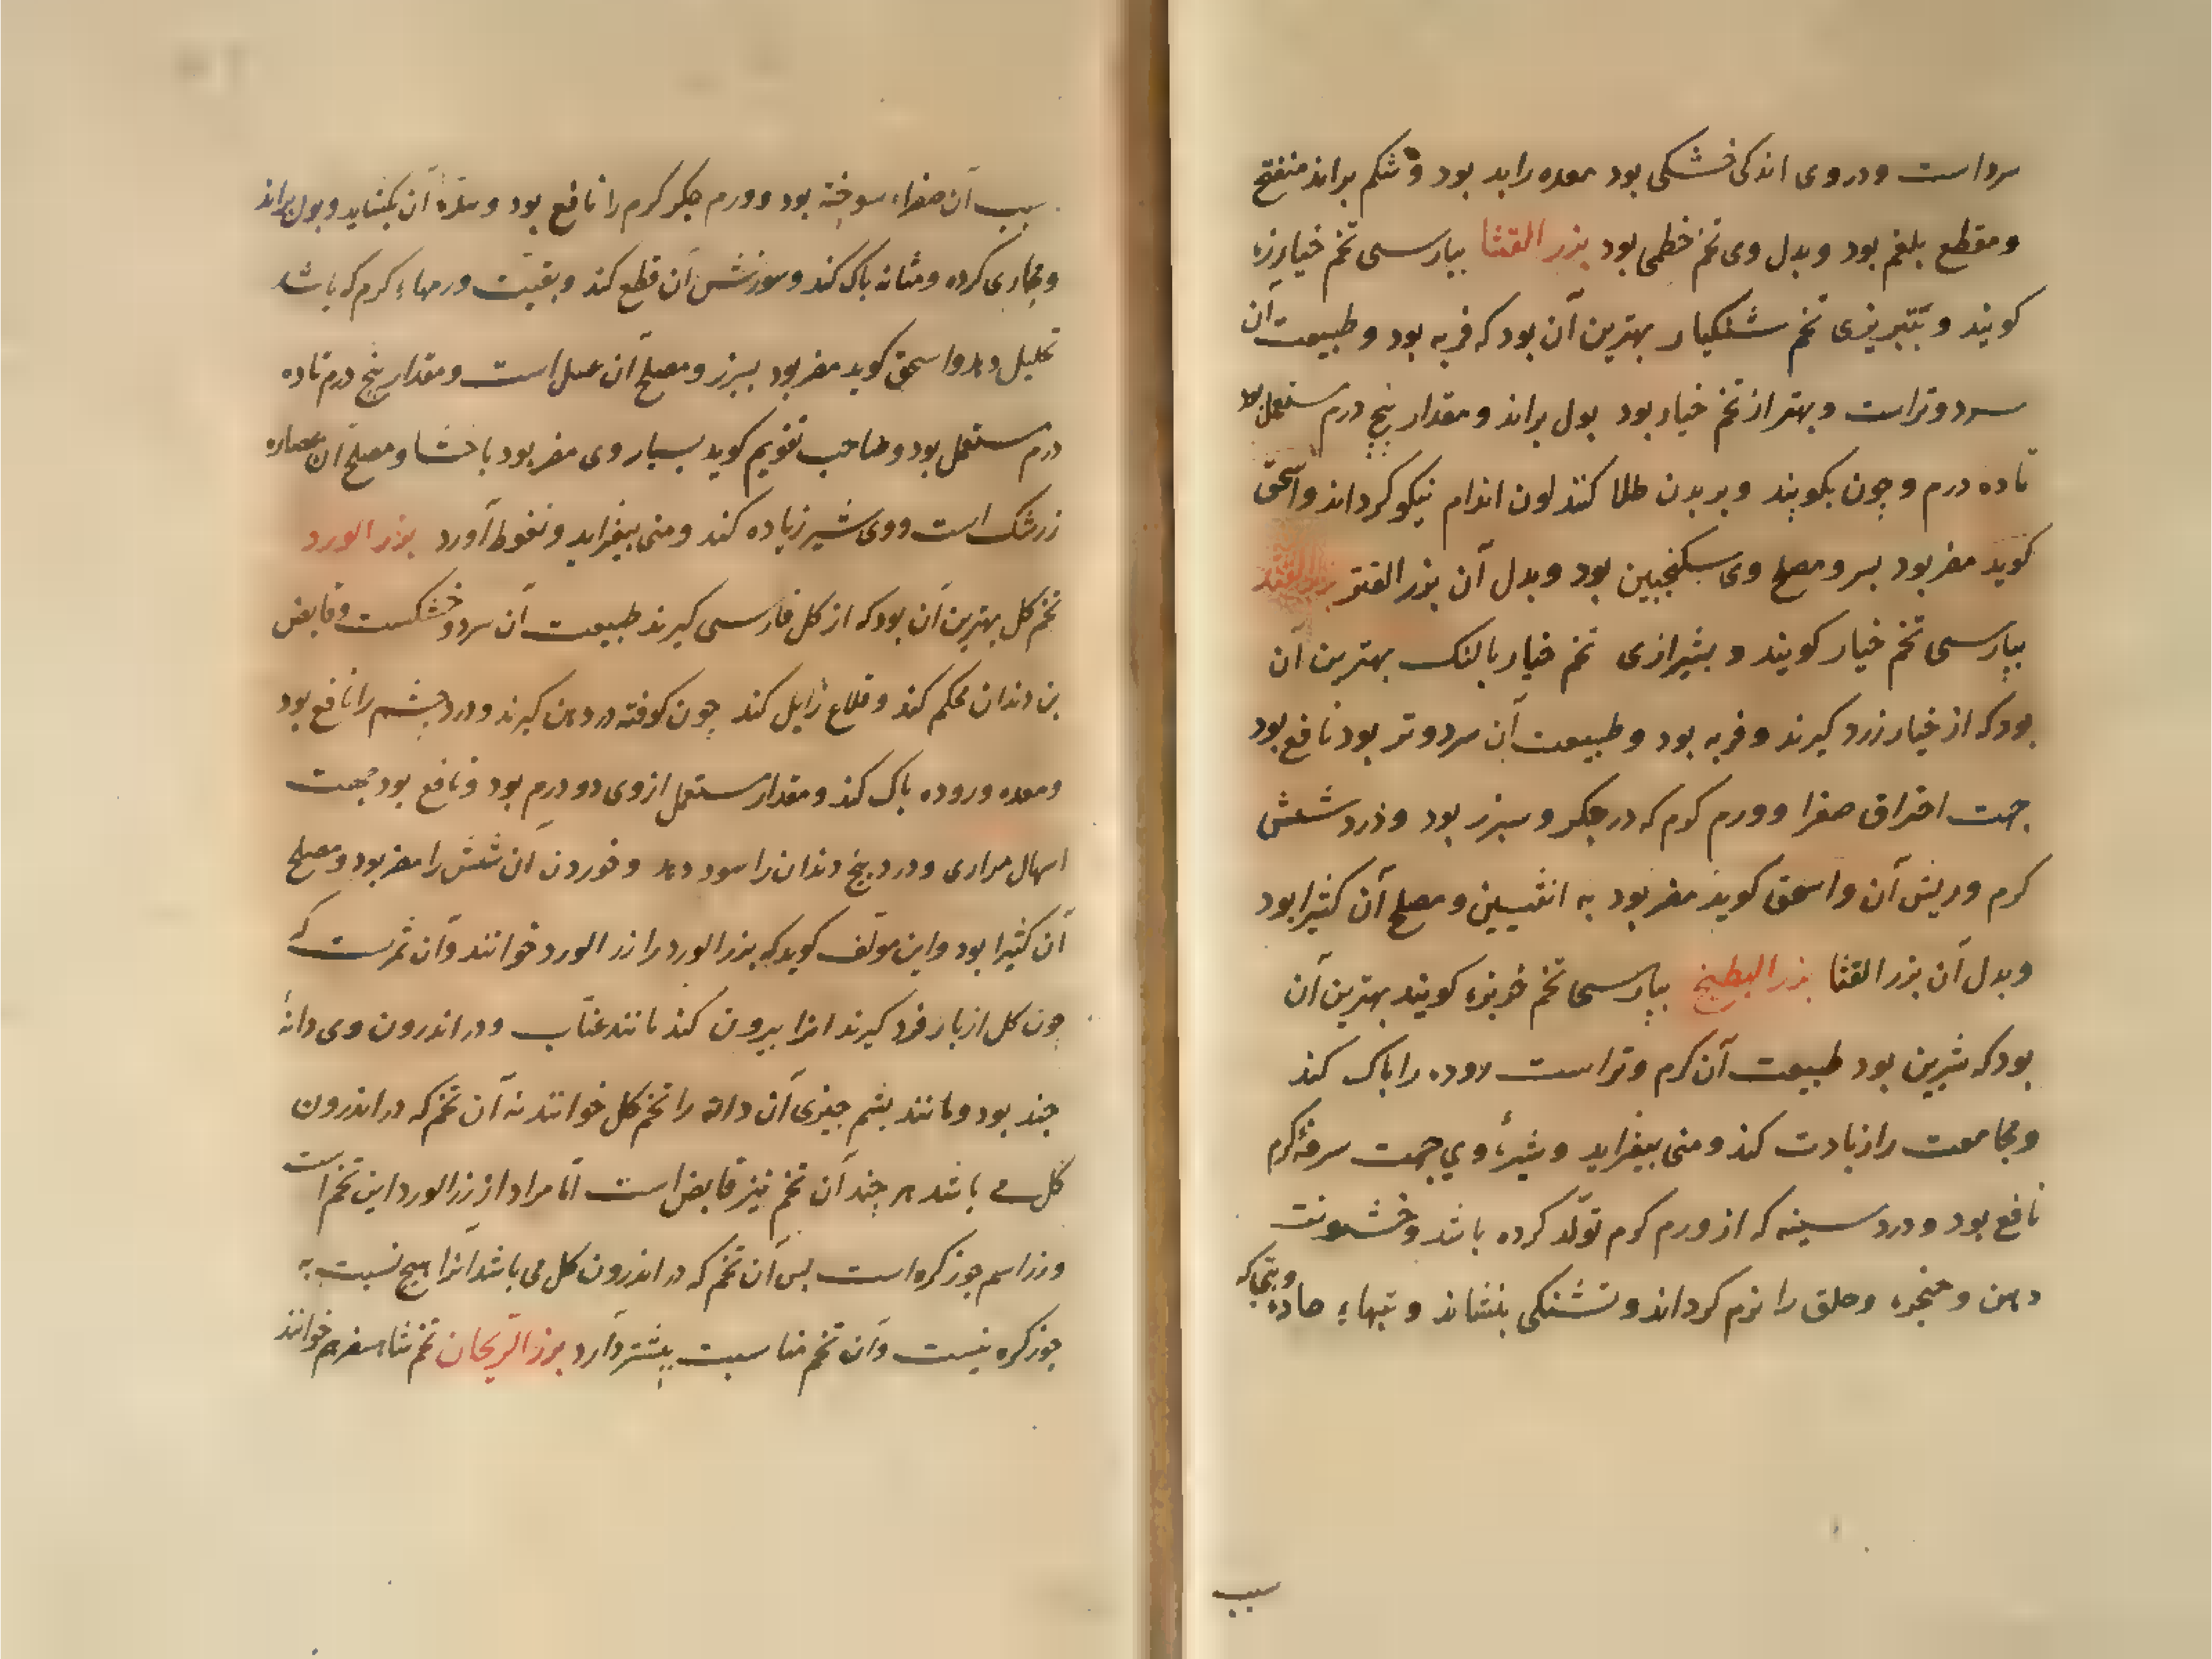 سرد است و در وی اندکی خشکی بود معده را بد بود و شکم براند منفتح
و مقطع بلغم بود و بدل وی تخم خطمی بود بزر القثا بپارسی تخم خیارزه
کویند و بتبریزی تخم شنکیار بهترین آن بود که فربه بود و طبیعت آن
سرد و تر است و بهتر از تخم خیار بود بول براند و مقدار پنج درم مستعمل بود
تا ده درم و چون بکوبند و بر بدن طلا کنند لون اندام نیکو کرداند و اسحق
کوید مضر بود بسر و مصلح وی سکنجبین بود و بدل آن بزر القند بزر القثد
بپارسی تخم خیار کویند و بشیرازی تخم خیار بالنک بهترین آن
بود که از خیار زرد کیرند و فربه بود و طبیعت آن سرد و تر بود نافع بود
جهت احراق صفرا و ورم کرم که در جکر و سپرز بود و درد شش
کرم و ریش آن و اسحق کوید مضر بود به انثیین و مصلح آن کثیرا بود
و بدل آن بزر القثا بزر البطیخ بپارسی تخم خربزه کویند بهترین آن
بود که شیرین بود طبیعت آن کرم و تر است روده را پاک کند
و مجامعت را زیادت کند و منی بیفزاید و شیرهٔ وی جهت سرفهٔ کرم
نافع بود و درد سینه که از ورم کرم تولد کرده باشد و خشونت
دهن و حنجره و حلق را نرم کرداند و تشنکی بنشاند و تبهاء حاده و تبی که
سبب
سبب آن صفراء سوخته بود و ورم جکر کرم را نافع بود و سدّهٔ آن بکشاید و بول براند
و مجاری کرده و مثانه پاک کند و سوزش آن قطع کند و بقیت ورمهاء کرم که باشد
تحلیل دهد و اسحق کوید مضر بود بسپرز و مصلح آن عسل است و مقدار پنج درم تا ده
درم مستعمل بود و صاحب تقویم کوید بسیار وی مضر بود باحشا و مصلح آن عصاره
زرشک است و وی شیر زیاده کند و منی بیفزاید و نغوظ آورد بزر الورد
تخم کل بهترین آن بود که از کل فارسی کیرند طبیعت آن سرد و خشکست و قابض
بن دندان محکم کند و قلاع زایل کند چون کوفته در دهن کیرند و درد چشم را نافع بود
و معده و روده پاک کند و مقدار مستعمل از وی دو درم بود و نافع بود جهت
اسهال مراری و درد بیخ دندان را سود دهد و خوردن آن شش را مضر بود و مصلح
آن کثیرا بود و این مؤلف کوید که بزر الورد را زر الورد خوانند و آن ثمرست که
چون کل از بار فرد کیرند انرا بیرون کند مانند عنّاب و در اندرون وی دانهٔ
چند بود و مانند پشم چیزی آن دانه را تخم کل خوانند نه آن تخم که در اندرون
کل می باشد هر چند آن تخم نیز قابض است امّا مراد از بزر الورد این تخم است
و زر اسم جوز کره است پس آن تخم که در اندرون کل می باشد آنرا هیچ نسبت به
جوز کره نیست و آن تخم مناسبت بیشتر دارد بزر الریحان تخم شاهسفرهم خوانند